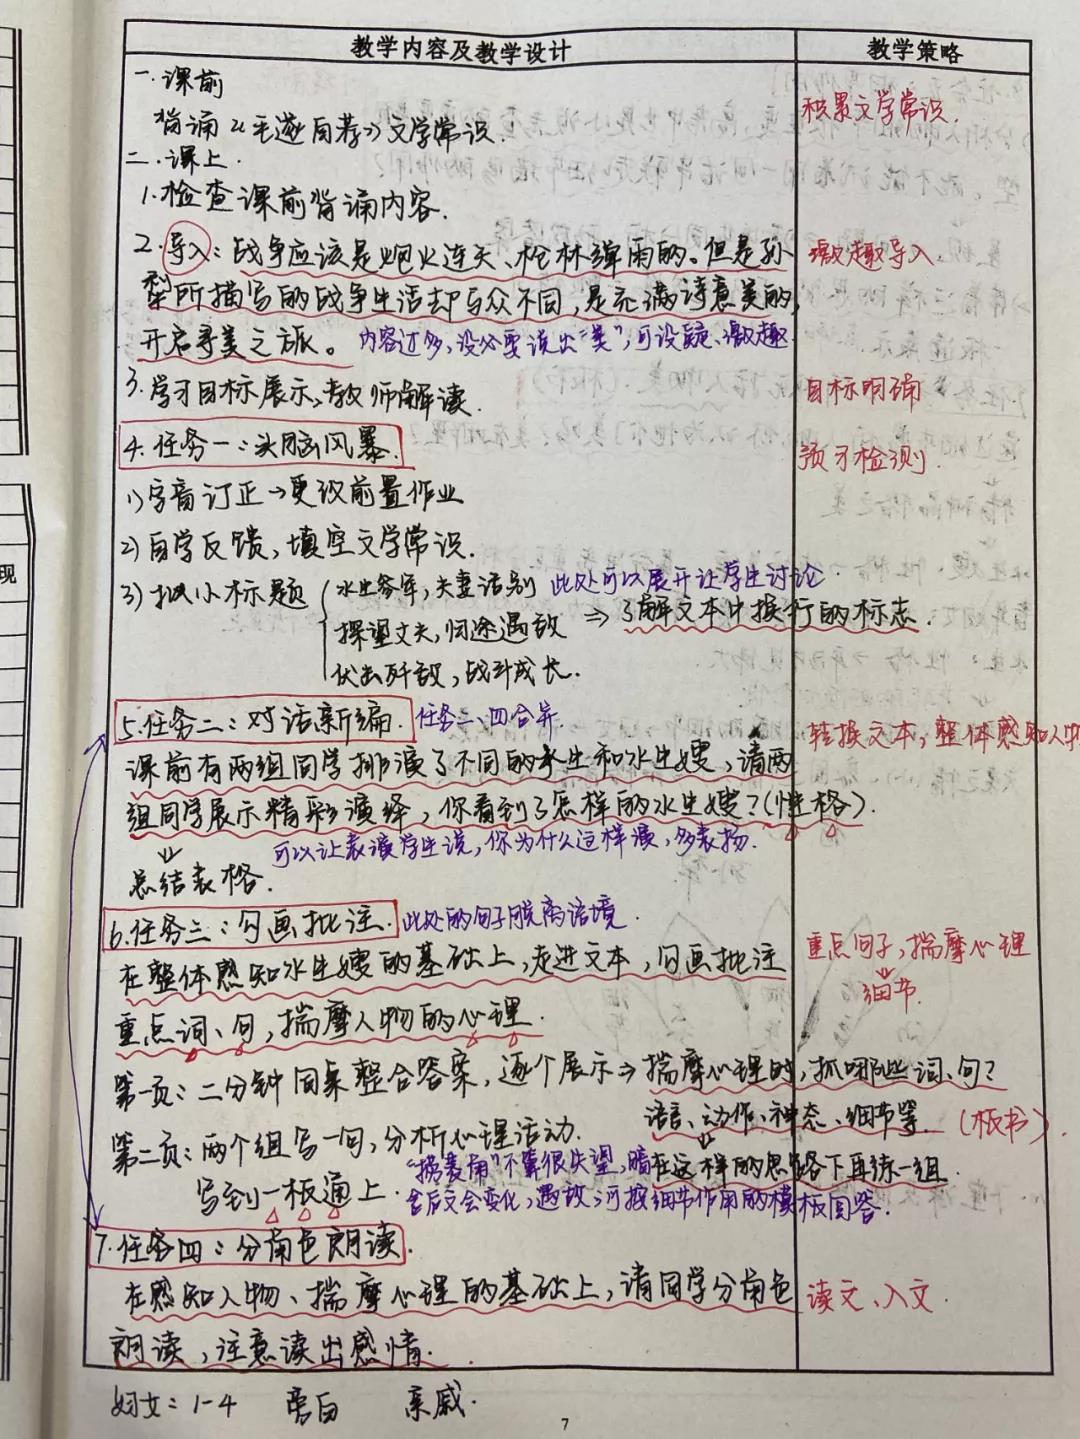 教学内容及教学设计
教学策略
一.课前
背诵《毛遂自荐》文学常识.
积累文学常识.
二.课上.
1.检查课前背诵内容.
2.导入:战争应该是炮火连天、枪林弹雨的。但是孙
激趣导入
犁所描写的战争生活却与众不同,是充满诗意美的,
开启寻美之旅。 内容过多,没必要说出"美",可设疑、激趣.
3.学习目标展示,教师解读.
目标明确
4.任务一:头脑风暴.
预习检测.
1)字音订正→更改前置作业
2)自学反馈,填空文学常识.
3)拟小标题 水生参军,夫妻话别 此处可以展开让学生讨论.
探望丈夫,归途遇敌 ⇒ 了解文本中换行的标志.
伏击歼敌,战斗成长.
5.任务二:对话新编. 任务二、四合并.
转换文本,整体感知人物
课前有两组同学排演了不同的水生和水生嫂,请两
组同学展示精彩演绎,你看到了怎样的水生嫂?(性格).
可以让表演学生说,你为什么这样演,多表扬.
总结表格.
6.任务三:勾画批注. 此处的句子脱离语境.
在整体感知水生嫂的基础上,走进文本,勾画批注
重点句子,揣摩心理
细节.
重点词、句,揣摩人物的心理.
第一页:二分钟同桌整合答案,逐个展示⇒揣摩心理时,抓哪些词、句?
语言、动作、神态、细节等. (板书).
第二页:两个组写一句,分析心理活动.
在这样的思路下再练一组.
不算很失望,暗
写到一板通上.
含后文会变化,遇敌,可按细节作用的模板回答.
7.任务四:分角色朗读.
在感知人物、揣摩心理的基础上,请同学分角色
读文、入文.
朗读,注意读出感情.
妇女:1-4 旁白 亲戚.
7
现